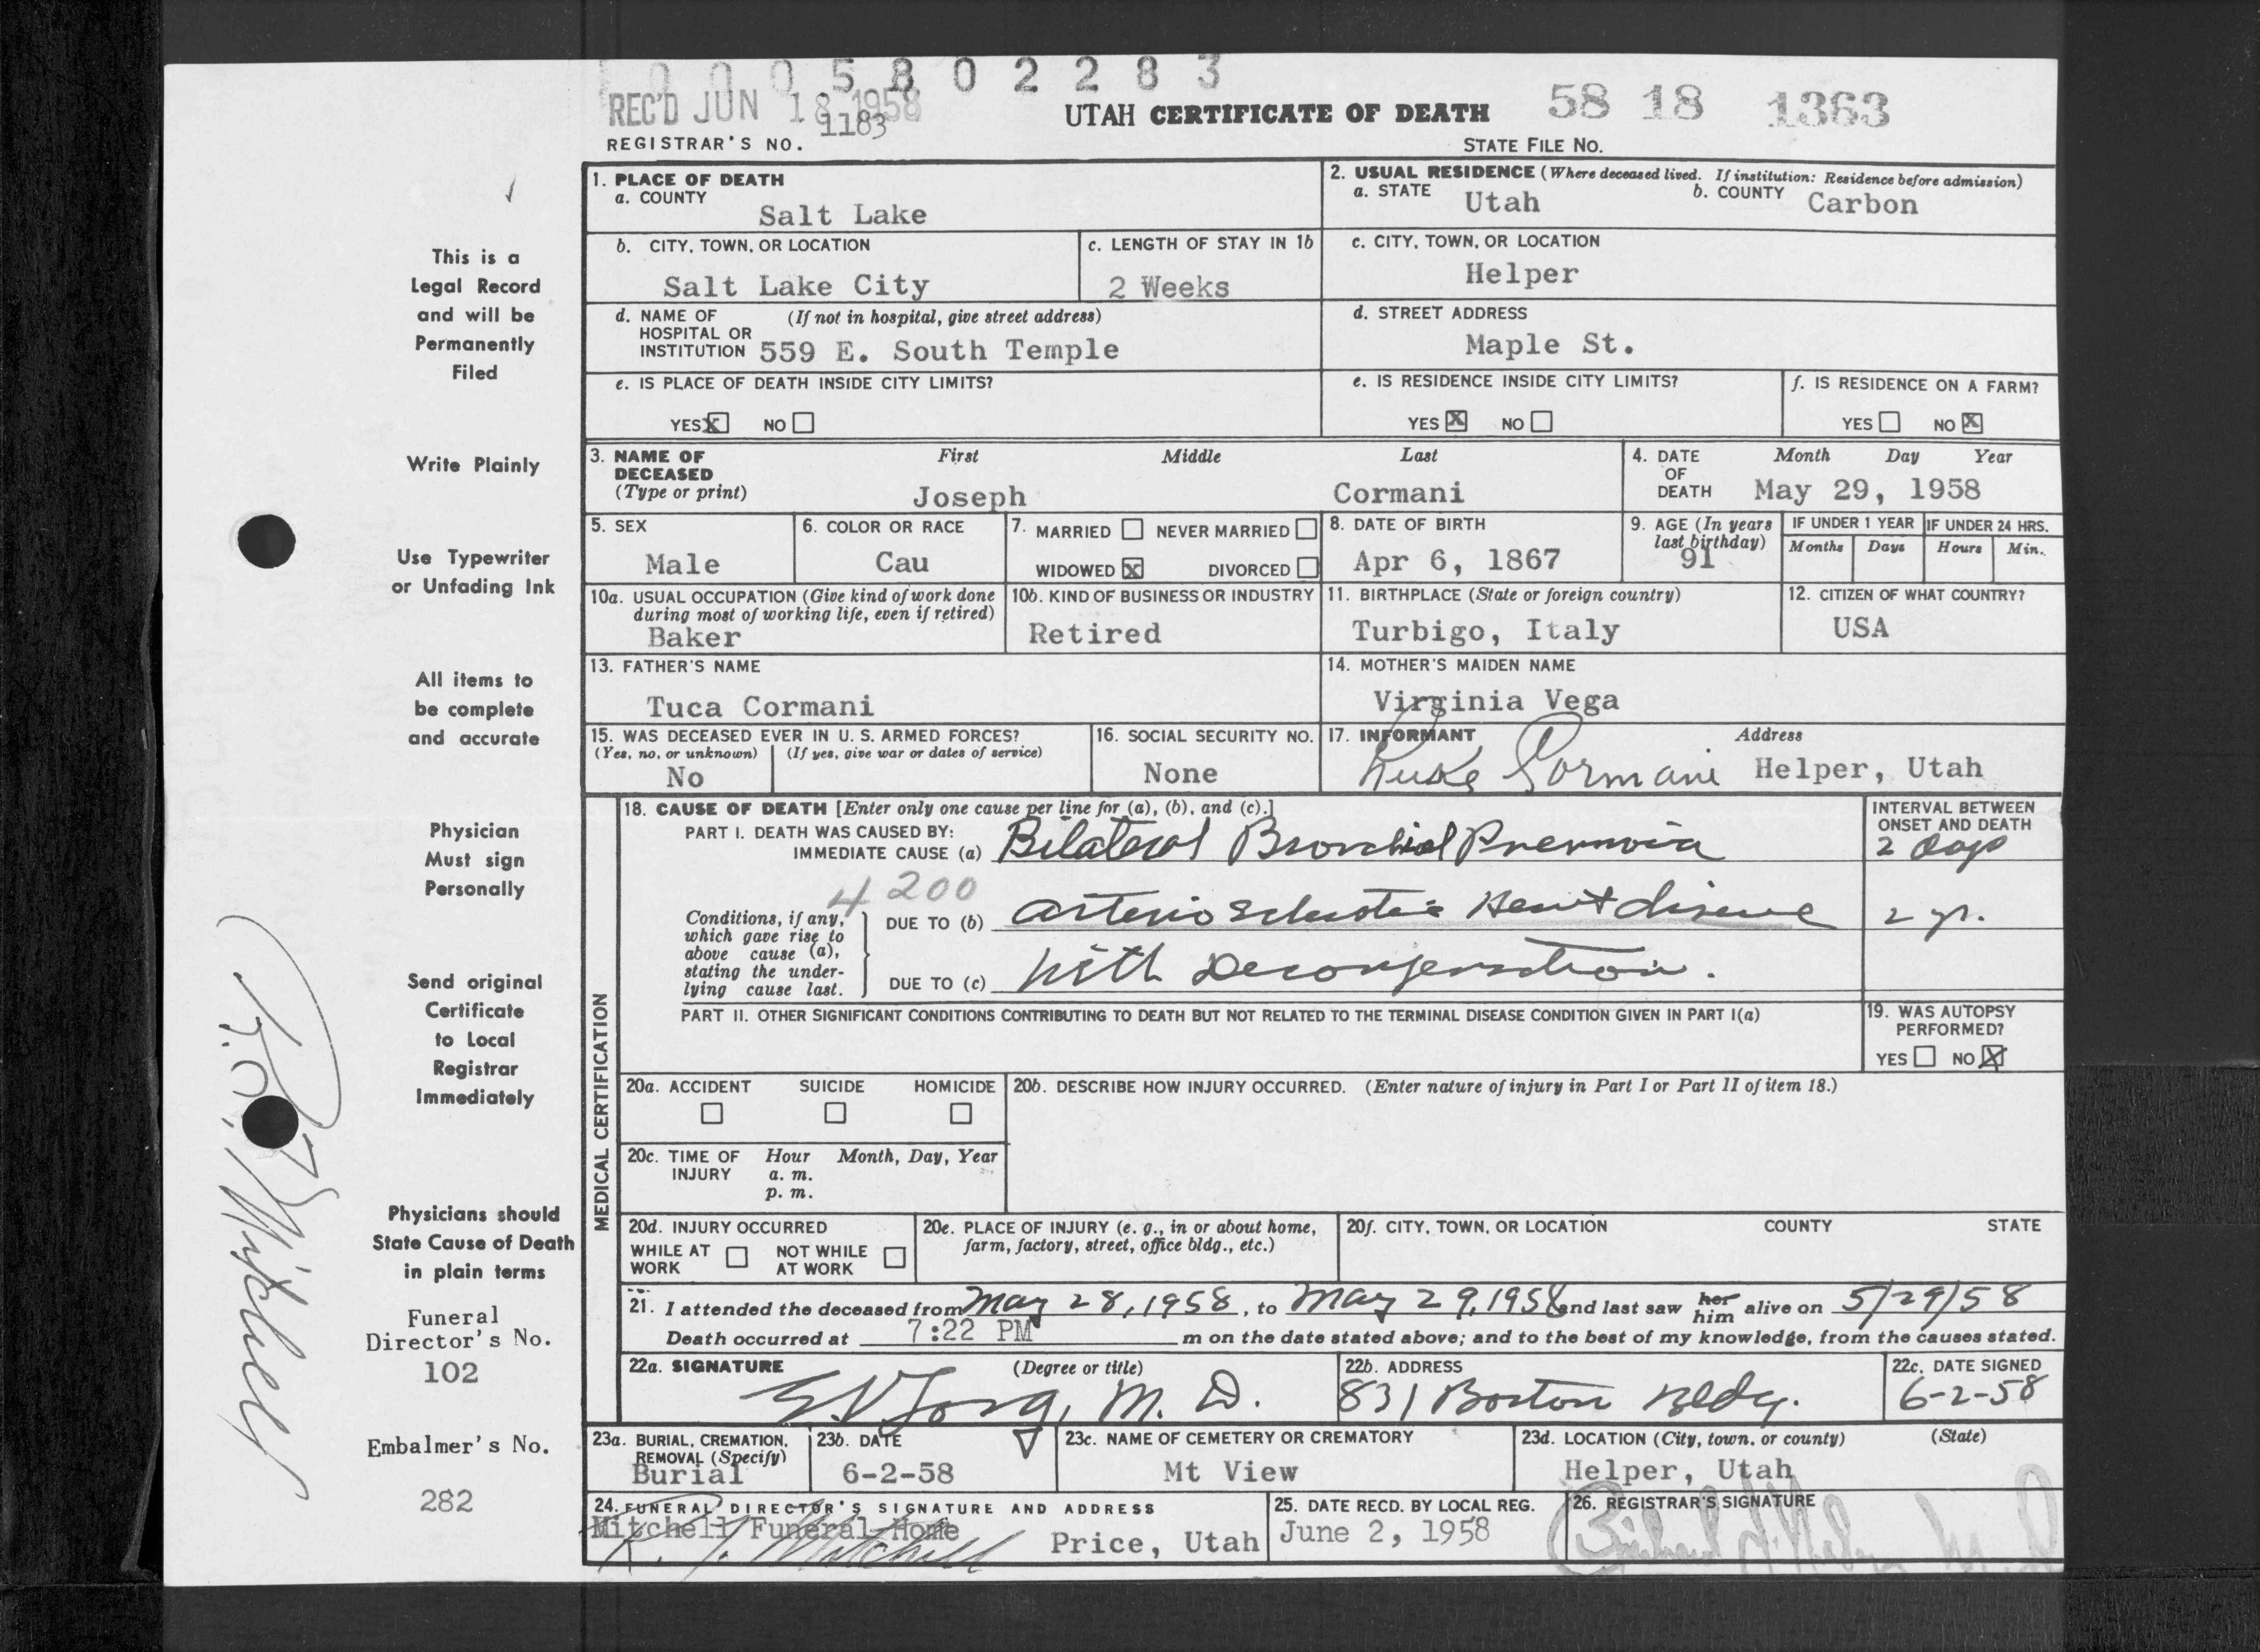 0 0 0 5 8 0 2 2 8 3
REC'D JUN 18 1958
1183
REGISTRAR'S NO.
UTAH CERTIFICATE OF DEATH
58 18 1363
STATE FILE NO.
1. PLACE OF DEATH
a. COUNTY
Salt Lake
2. USUAL RESIDENCE (Where deceased lived. If institution: Residence before admission)
a. STATE Utah b. COUNTY Carbon
b. CITY, TOWN, OR LOCATION
Salt Lake City
c. LENGTH OF STAY IN 1b
2 Weeks
c. CITY, TOWN, OR LOCATION
Helper
d. NAME OF HOSPITAL OR INSTITUTION (If not in hospital, give street address)
559 E. South Temple
d. STREET ADDRESS
Maple St.
e. IS PLACE OF DEATH INSIDE CITY LIMITS?
YES X NO
e. IS RESIDENCE INSIDE CITY LIMITS?
YES X NO
f. IS RESIDENCE ON A FARM?
YES NO X
3. NAME OF DECEASED (Type or print)
First Middle Last
Joseph Cormani
4. DATE OF DEATH
Month Day Year
May 29, 1958
5. SEX
Male
6. COLOR OR RACE
Cau
7. MARRIED NEVER MARRIED
WIDOWED X DIVORCED
8. DATE OF BIRTH
Apr 6, 1867
9. AGE (In years last birthday)
91
IF UNDER 1 YEAR
Months Days
IF UNDER 24 HRS.
Hours Min.
10a. USUAL OCCUPATION (Give kind of work done during most of working life, even if retired)
Baker
10b. KIND OF BUSINESS OR INDUSTRY
Retired
11. BIRTHPLACE (State or foreign country)
Turbigo, Italy
12. CITIZEN OF WHAT COUNTRY?
USA
13. FATHER'S NAME
Tuca Cormani
14. MOTHER'S MAIDEN NAME
Virginia Vega
15. WAS DECEASED EVER IN U. S. ARMED FORCES?
(Yes, no, or unknown) (If yes, give war or dates of service)
No
16. SOCIAL SECURITY NO.
None
17. INFORMANT Address
Luke Cormani Helper, Utah
MEDICAL CERTIFICATION
18. CAUSE OF DEATH [Enter only one cause per line for (a), (b), and (c).]
PART I. DEATH WAS CAUSED BY:
IMMEDIATE CAUSE (a) Bilateral Bronchial Pneumonia
INTERVAL BETWEEN ONSET AND DEATH
2 days
4200
Conditions, if any, which gave rise to above cause (a), stating the underlying cause last.
DUE TO (b) Arterio Sclerotic Heart disease
2 yr.
DUE TO (c) With Decompensation.
PART II. OTHER SIGNIFICANT CONDITIONS CONTRIBUTING TO DEATH BUT NOT RELATED TO THE TERMINAL DISEASE CONDITION GIVEN IN PART I(a)
19. WAS AUTOPSY PERFORMED?
YES NO X
20a. ACCIDENT SUICIDE HOMICIDE
20b. DESCRIBE HOW INJURY OCCURRED. (Enter nature of injury in Part I or Part II of item 18.)
20c. TIME OF INJURY Hour Month, Day, Year
a. m.
p. m.
20d. INJURY OCCURRED
WHILE AT WORK NOT WHILE AT WORK
20e. PLACE OF INJURY (e. g., in or about home, farm, factory, street, office bldg., etc.)
20f. CITY, TOWN, OR LOCATION COUNTY STATE
21. I attended the deceased from May 28, 1958, to May 29, 1958 and last saw her him alive on 5/29/58
Death occurred at 7:22 PM m on the date stated above; and to the best of my knowledge, from the causes stated.
22a. SIGNATURE (Degree or title)
M. D.
22b. ADDRESS
831 Boston Bldg.
22c. DATE SIGNED
6-2-58
23a. BURIAL, CREMATION, REMOVAL (Specify)
Burial
23b. DATE
6-2-58
23c. NAME OF CEMETERY OR CREMATORY
Mt View
23d. LOCATION (City, town, or county) (State)
Helper, Utah
24. FUNERAL DIRECTOR'S SIGNATURE AND ADDRESS
Mitchell Funeral Home
Mitchell
Price, Utah
25. DATE RECD. BY LOCAL REG.
June 2, 1958
26. REGISTRAR'S SIGNATURE
This is a
Legal Record
and will be
Permanently
Filed
Write Plainly
Use Typewriter
or Unfading Ink
All items to
be complete
and accurate
Physician
Must sign
Personally
Send original
Certificate
to Local
Registrar
Immediately
Physicians should
State Cause of Death
in plain terms
Funeral
Director's No.
102
Embalmer's No.
282
Mitchell